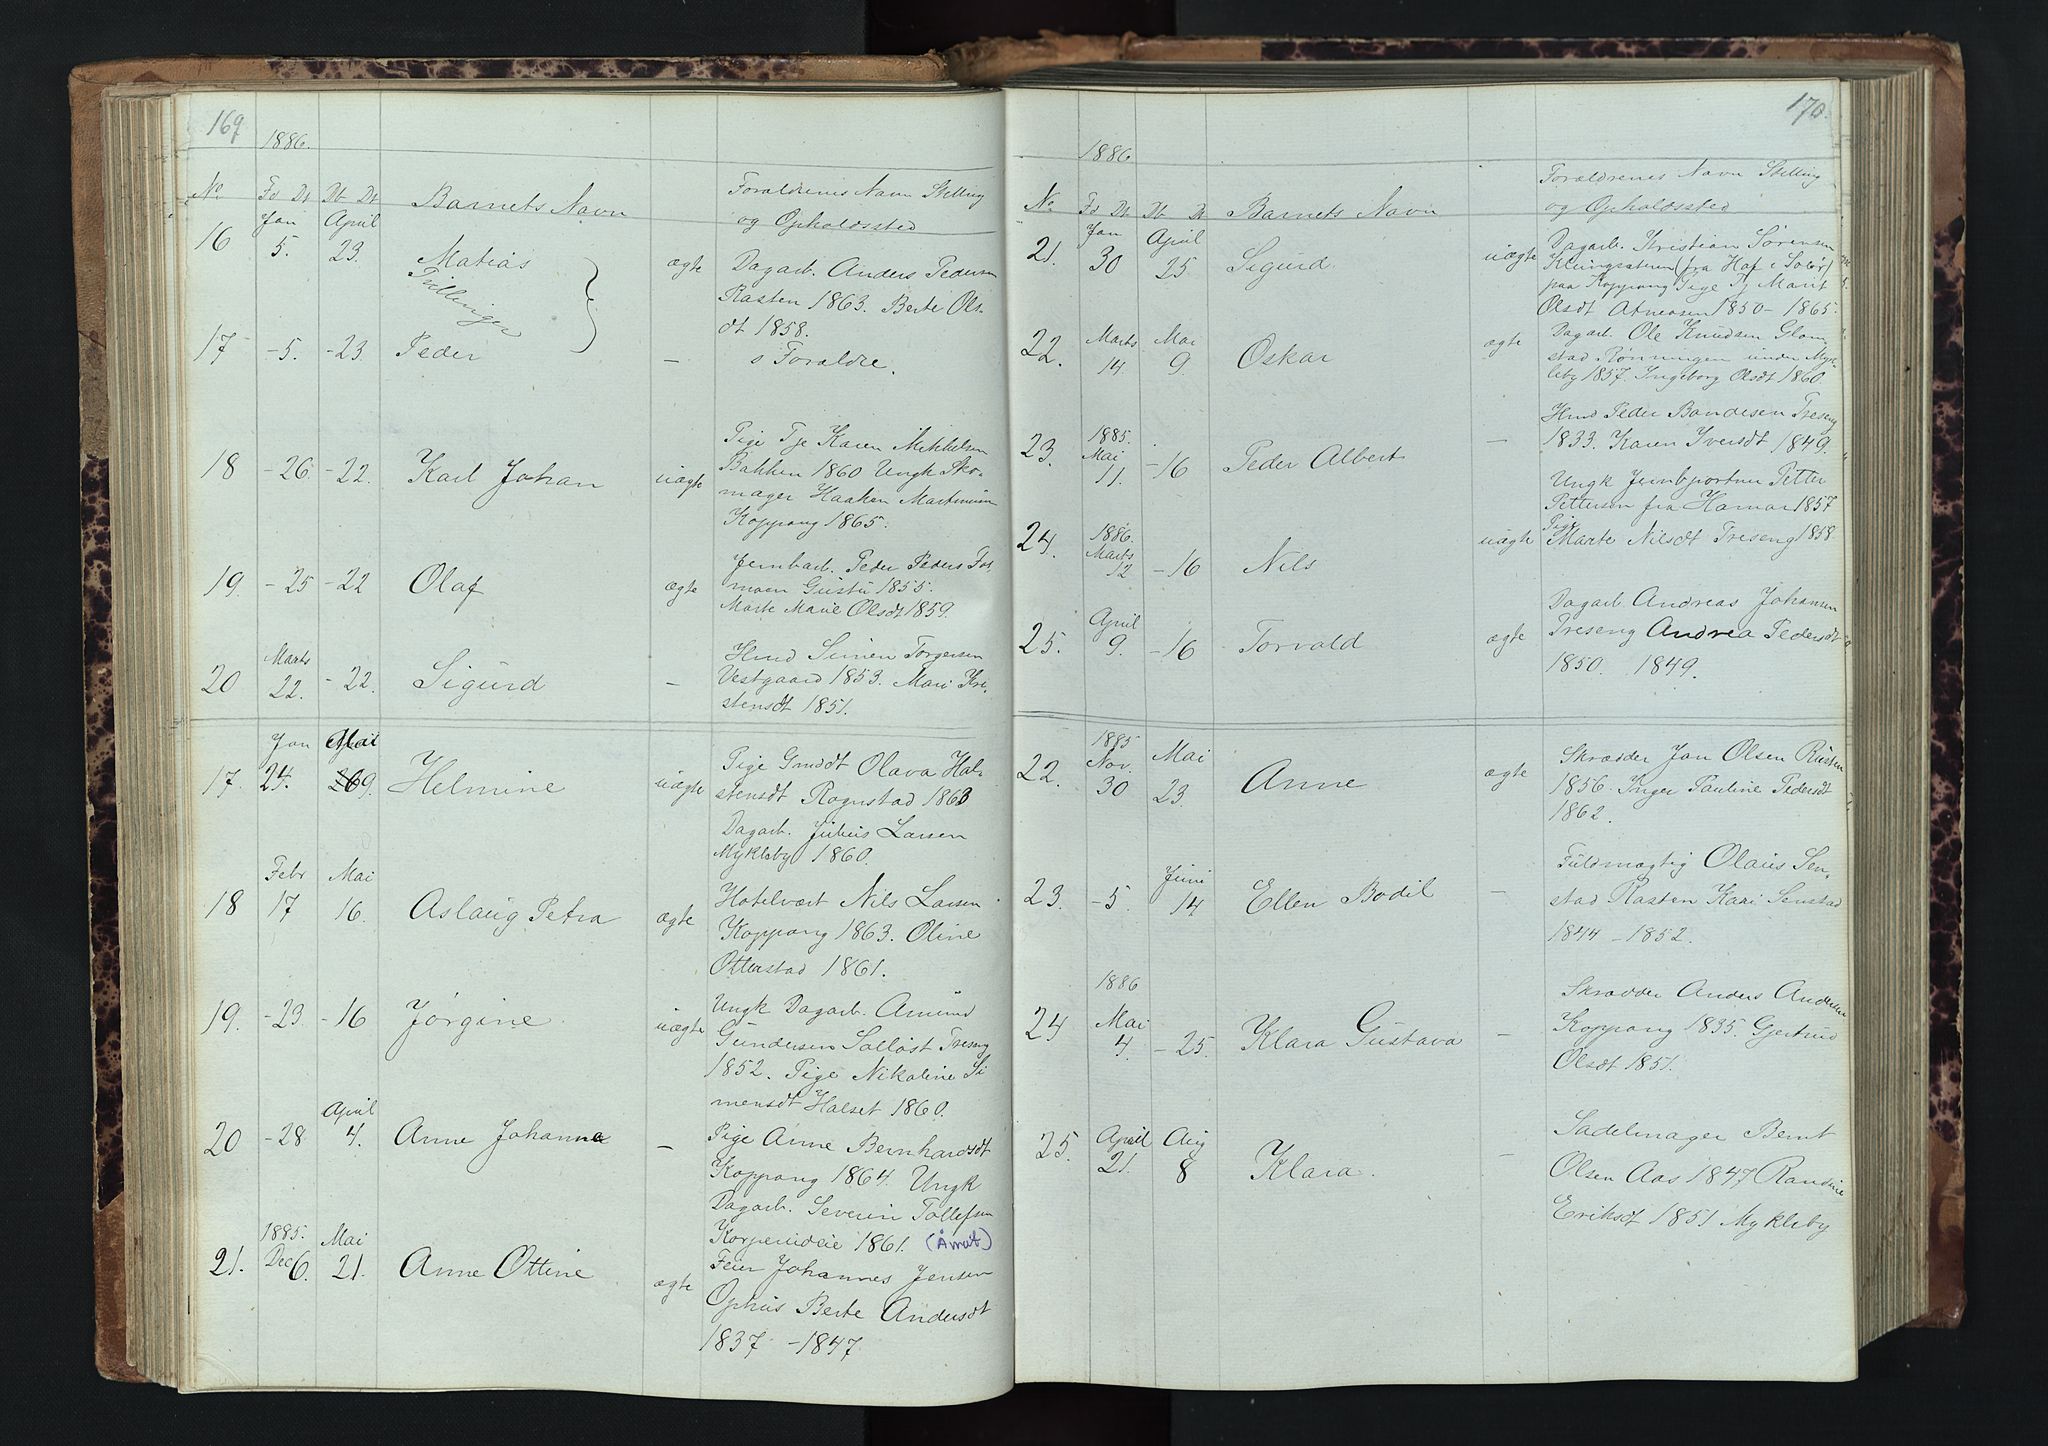 169
1886.
No Fd Dt Db Dt Barnets Navn Foraldrenes Navn Stilling
og Opholdssted
16 Jan 5. April 23. Matias ægte Dagarb. Anders Pedersen
Tvillinger
Rasten 1863. Berte Ols-
dt 1858.
17 -5. -23. Peder — s Foraldre.
18 -26. -22. Karl Johan uægte Pige Tje Karen Mikkelsen
Bakken 1860 Ungk Sko-
mager Haakon Martinius
Koppang 1865.
19. -25 -22 Olaf ægte Jernbarb. Peder Peders
moen 1855.
Marte Marie Olsdt 1859.
20 Marts 22. -22. Sigurd — Hmd Simen Torgersen
Vestgaard 1853. Mari Kri-
stensdt 1851.
17. Jan 24. Mai 9. Helmine uægte Pige Gmddt Olava Hal-
stensdt Rognstad 1863
Dagarb. Julius Larsen
Mykleby 1860.
18 Febr 17 Mai 16. Aslaug Petra ægte Hotelvært Nils Larsen
Koppang 1863. Oline
Otterstad 1861.
19. -23. -16 Jørgine uægte Ungk Dagarb. Amund
Gundersen Solløst Treseng
1852. Pige Nikoline Si
mensdt Halset 1860.
20 -28 April 4. Anne Johanne — Pige Anne Bernhardsdt
Koppang 1864. Ungk
Dagarb. Severin Tollefsen
Korpenideie 1861. (Åmot)
21. 1885. Dec 6. Mai 21. Anne Ottine ægte Feier Johannes Jensen
Ophus Berte Andersdt
1837 -1847.
170.
1886
No. Fd Dt Db Dt Barnets Navn Forældrenes Navn Stilling
og Opholdssted
21. Jan 30 April 25 Sigurd uægte Dagarb. Kristian Sørensen
Klungsæteren (fra Hof i Solør)
paa Koppang Pige Tj Marit
Olsdt Atneosen 1850 - 1865.
22. Marts 14. Mai 9. Oskar ægte Dagarb Ole Knudsen Glom
stad Rønningen under Myk-
leby 1857. Ingeborg Olsdt 1860.
23. 1885. Mai 11. -16 Peder Albert — Hmd Peder Bondesen Treseng
1833. Karen Iversdt 1849.
24. 1886. Marts 12 -16 Nils uægte Ungk Jernbportner Petter
Pettersen fra Hamar 1857
Pige
Marte Nilsdt Treseng 1858
25. April 9. -16 Torvald ægte Dagarb. Andreas Johansen
Treseng Andrea Pedersdt
1850. 1849.
22. 1885 Nov. 30 Mai 23. Anne ægte Skrædder Jon Olsen Rasten
1856. Inger Pauline Pedersdt
1862.
23. -5. Juni 14 Ellen Bodil — Fuldmægtig Olaus Sen-
stad Rasten Kari Senstad
1844 - 1852.
24 1886 Mai 4. -25. Klara Gustava — Skrædder Anders Andersen
Koppang 1835. Gjertrud
Olsdt 1851.
25. April 21. Aug 8 Klara. — Sadelmager Bernt
Olsen Aas 1847 Randine
Eriksdt 1851 Mykleby